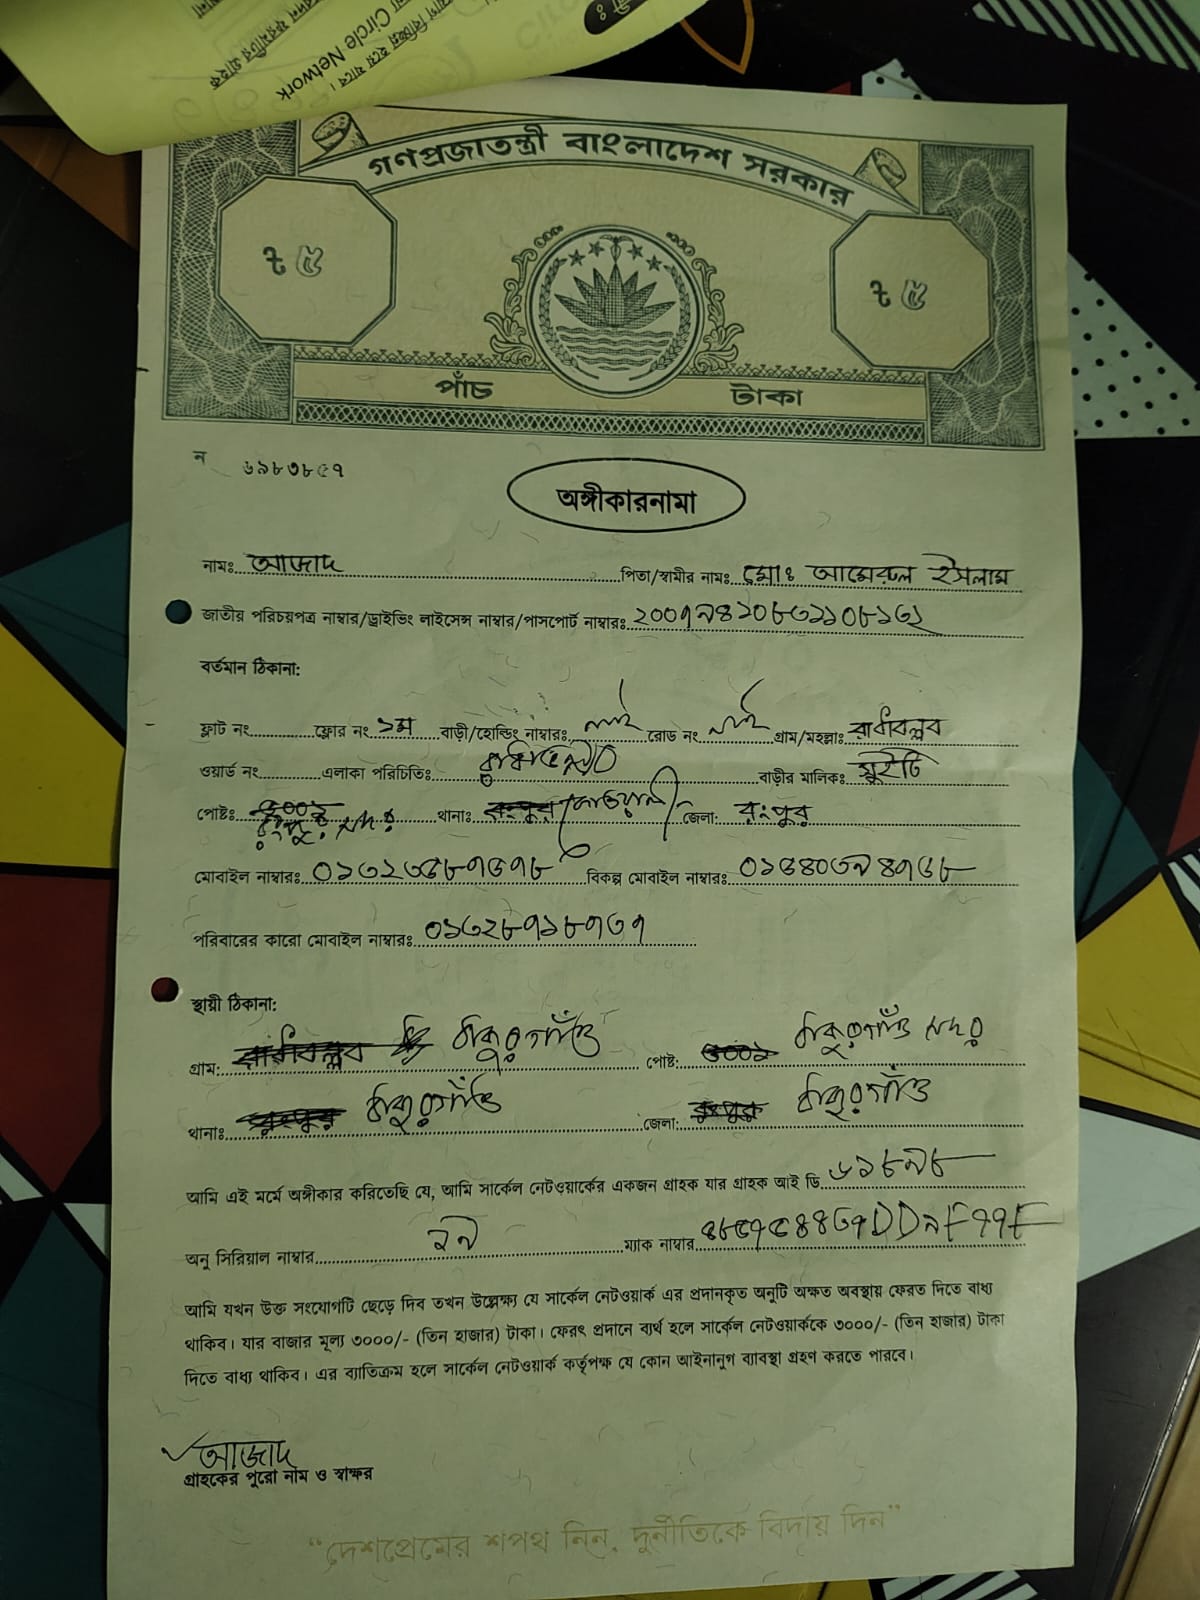 Circle Network
গণপ্রজাতন্ত্রী বাংলাদেশ সরকার
৳ ৫ ৳ ৫
পাঁচ টাকা
ন ৬৯৮৩৮৫৭
অঙ্গীকারনামা
নামঃ আজাদ পিতা/স্বামীর নামঃ মোঃ আমেরুল ইসলাম
জাতীয় পরিচয়পত্র নাম্বার/ড্রাইভিং লাইসেন্স নাম্বার/পাসপোর্ট নাম্বারঃ
বর্তমান ঠিকানা:
ফ্লাট নং ফ্লোর নং ১ম বাড়ী/হোল্ডিং নাম্বারঃ নাই রোড নং নাই গ্রাম/মহল্লাঃ রাধাবল্লব
ওয়ার্ড নং এলাকা পরিচিতিঃ বাড়ীর মালিকঃ সুইটি
পোষ্টঃ রংপুর সদর থানাঃ কোতয়ালী জেলা: রংপুর
মোবাইল নাম্বারঃ বিকল্প মোবাইল নাম্বারঃ
পরিবারের কারো মোবাইল নাম্বারঃ
স্থায়ী ঠিকানা:
গ্রাম: ঠাকুরগাঁও পোষ্ট: ঠাকুরগাঁও সদর
থানাঃ ঠাকুরগাঁও জেলা: ঠাকুরগাঁও
আমি এই মর্মে অঙ্গীকার করিতেছি যে, আমি সার্কেল নেটওয়ার্কের একজন গ্রাহক যার গ্রাহক আই ডি ৬১৮৯৮
অনু সিরিয়াল নাম্বার ম্যাক নাম্বার
আমি যখন উক্ত সংযোগটি ছেড়ে দিব তখন উল্লেক্ষ্য যে সার্কেল নেটওয়ার্ক এর প্রদানকৃত অনুটি অক্ষত অবস্থায় ফেরত দিতে বাধ্য
থাকিব। যার বাজার মূল্য ৩০০০/- (তিন হাজার) টাকা। ফেরৎ প্রদানে ব্যর্থ হলে সার্কেল নেটওয়ার্ককে ৩০০০/- (তিন হাজার) টাকা
দিতে বাধ্য থাকিব। এর ব্যাতিক্রম হলে সার্কেল নেটওয়ার্ক কর্তৃপক্ষ যে কোন আইনানুগ ব্যাবস্থা গ্রহণ করতে পারবে।
আজাদ
গ্রাহকের পুরো নাম ও স্বাক্ষর
“দেশপ্রেমের শপথ নিন, দুর্নীতিকে বিদায় দিন”